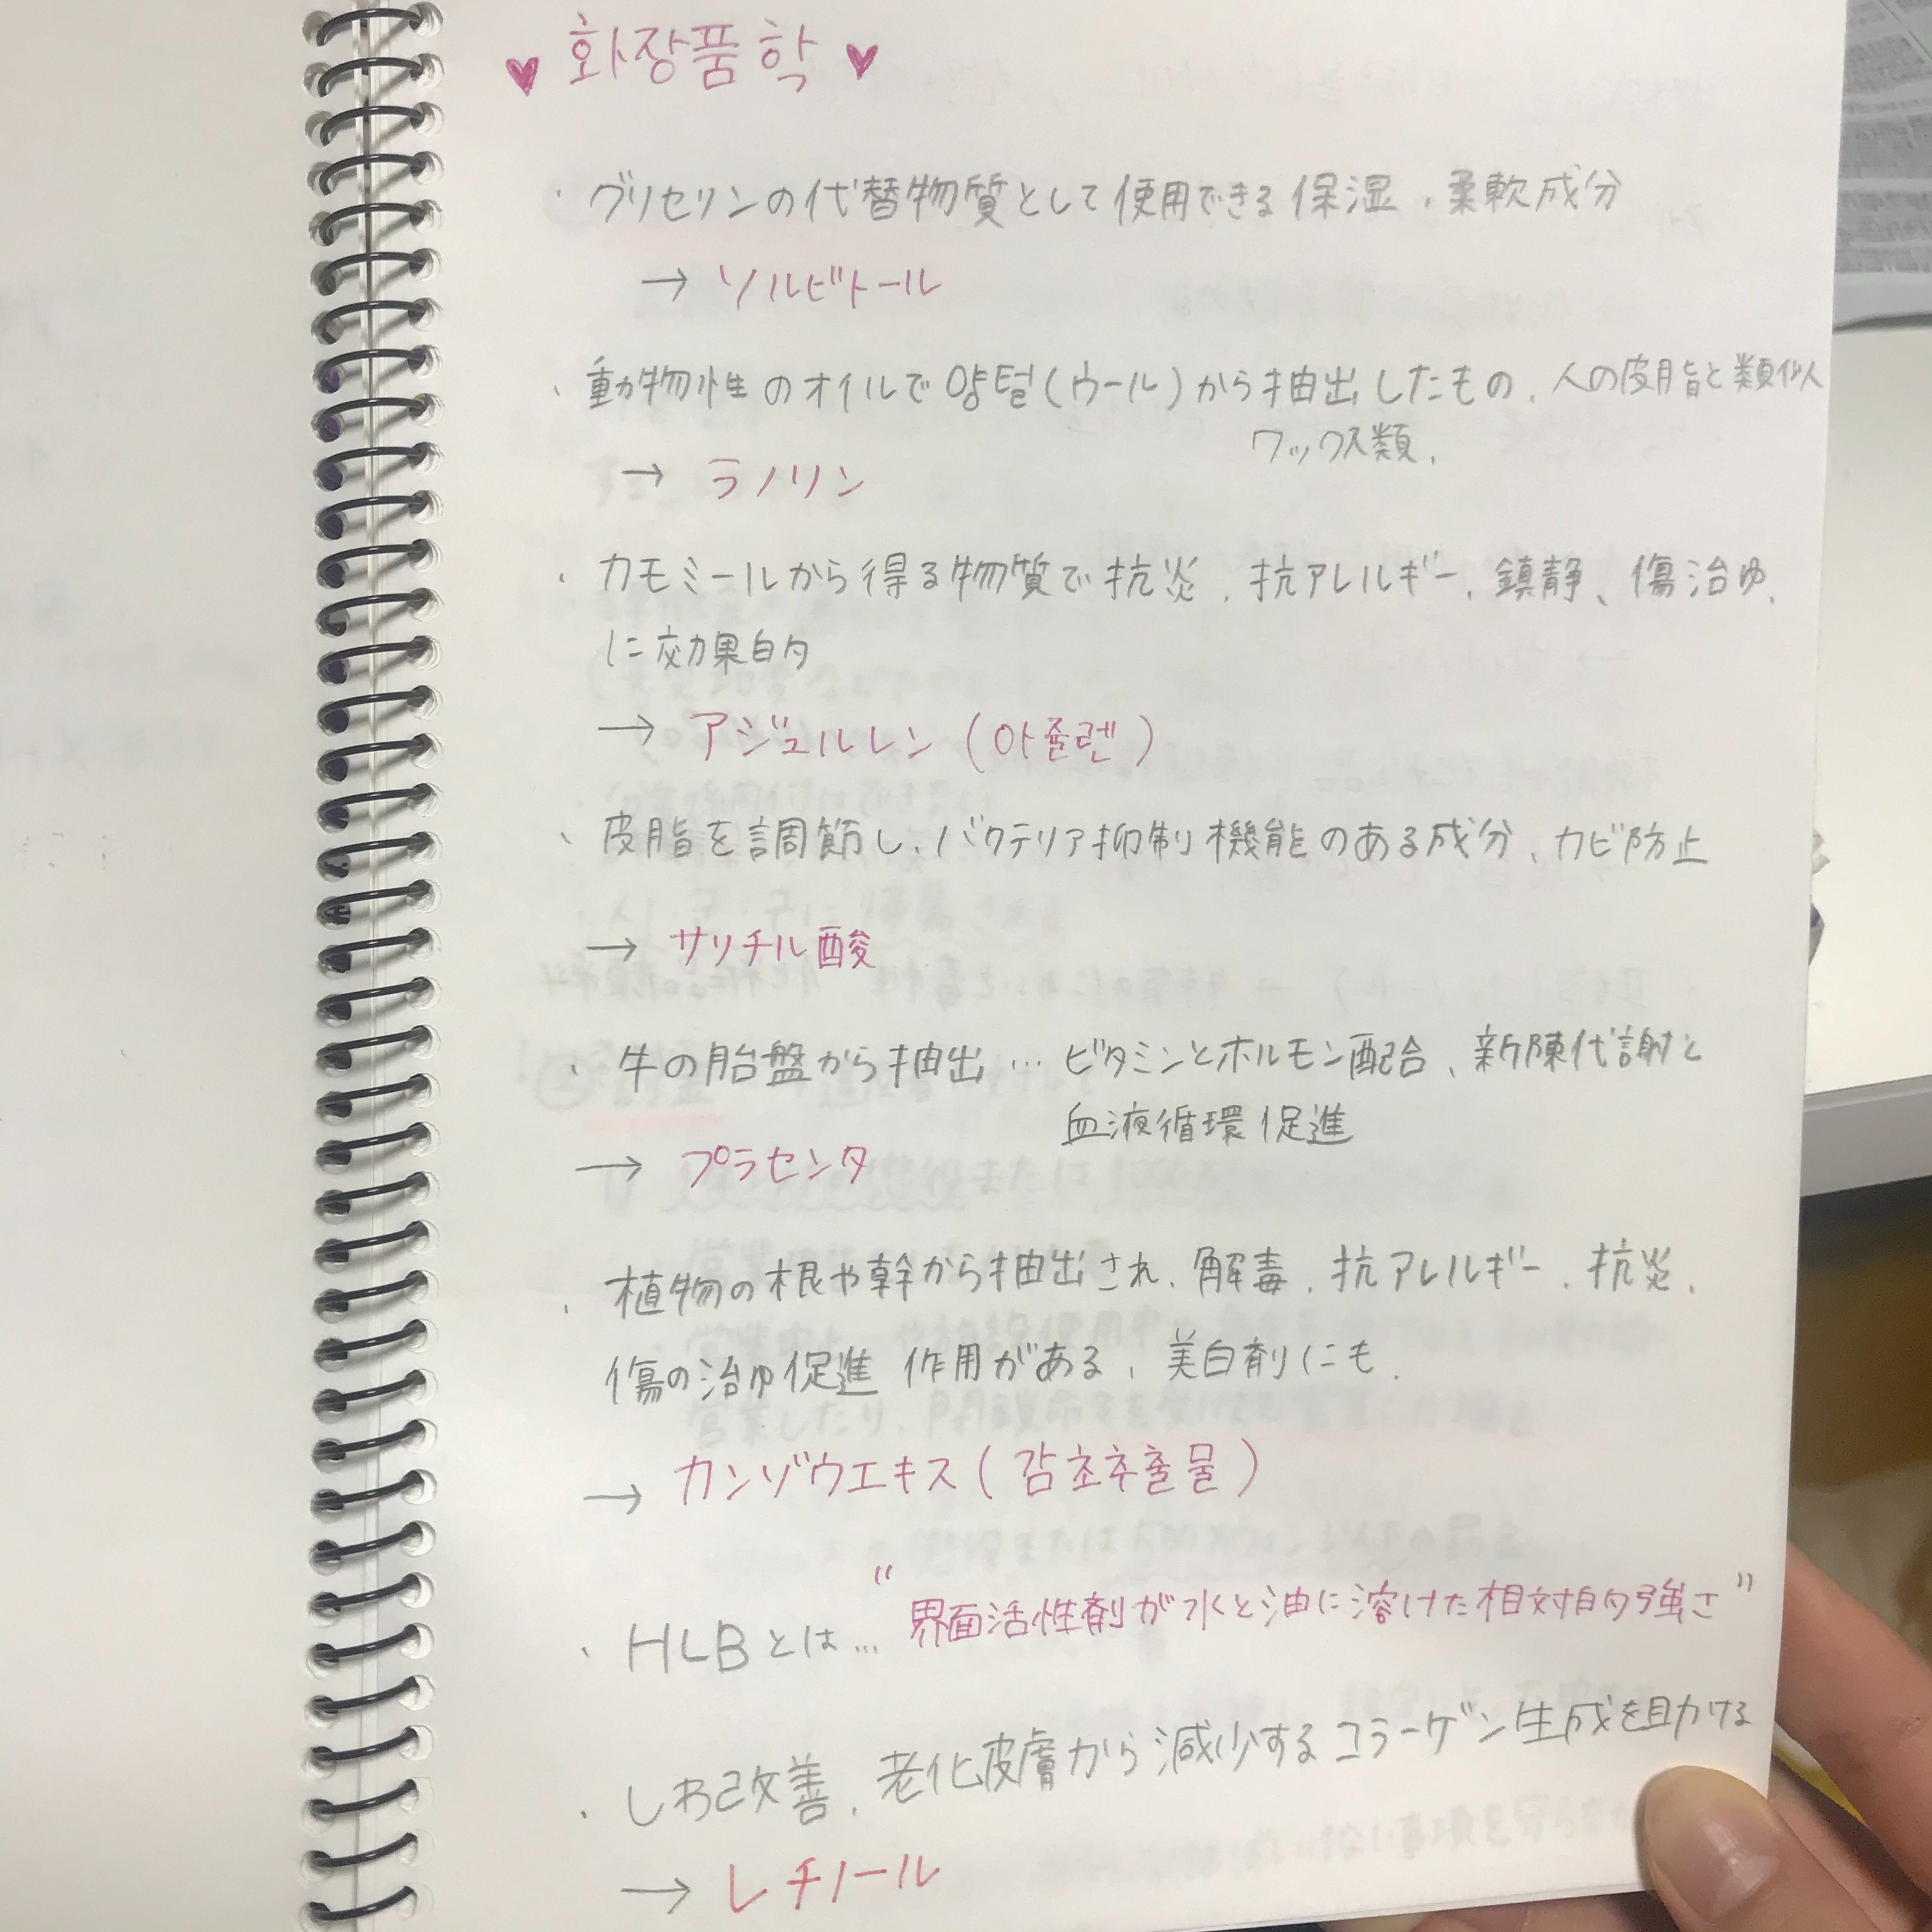 ♥ 화장품학 ♥
・グリセリンの代替物質として使用できる保湿、柔軟成分
→ ソルビトール
・動物性のオイルで양털(ウール)から抽出したもの、人の皮脂と類似
ワックス類、
→ ラノリン
・カモミールから得る物質で抗炎、抗アレルギー、鎮静、傷治ゆ、
に効果的
→ アジュルレン(아줄렌)
・皮脂を調節し、バクテリア抑制機能のある成分、カビ防止
→ サリチル酸
・牛の胎盤から抽出… ビタミンとホルモン配合、新陳代謝と
血液循環促進
→ プラセンタ
・植物の根や幹から抽出され、解毒、抗アレルギー、抗炎、
傷の治ゆ促進 作用がある、美白剤にも、
→ カンゾウエキス(감초추출물)
・HLBとは… "界面活性剤が水と油に溶けた相対的強さ"
・しわ改善、老化皮膚から減少するコラーゲン生成を助ける
→ レチノール